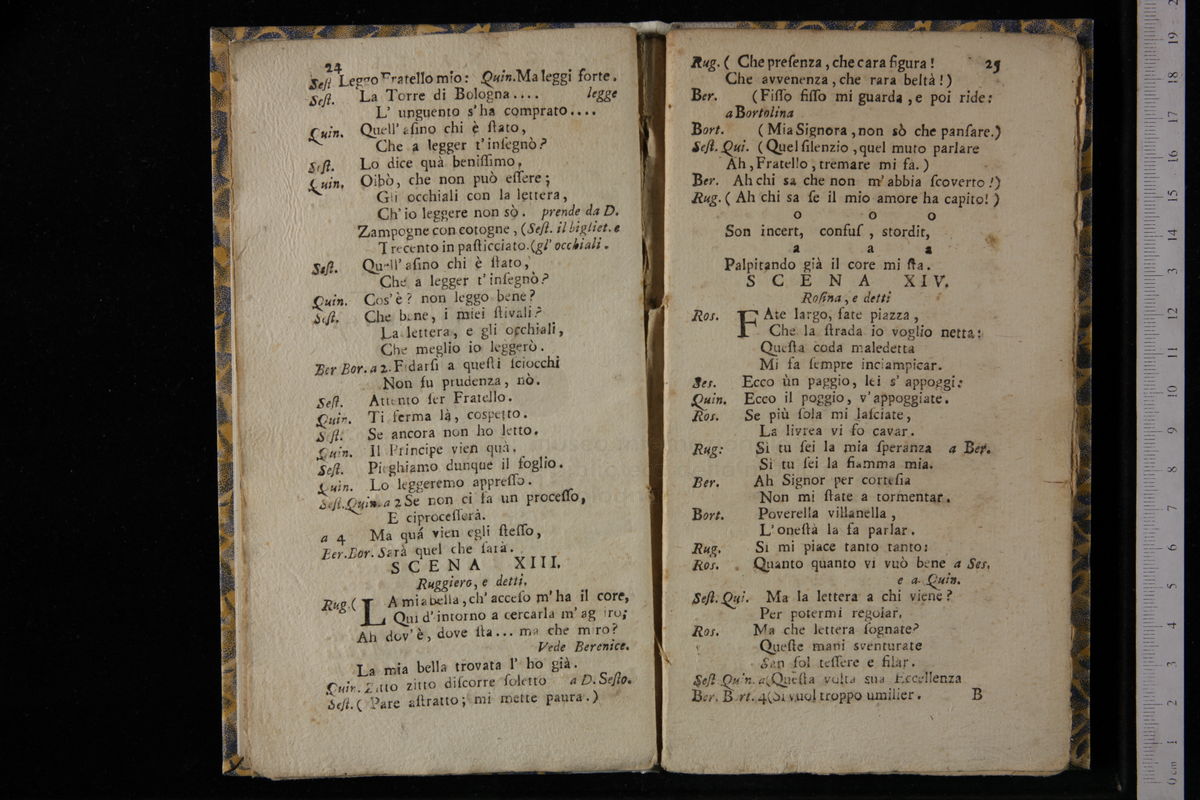 24
Seſt. Leggo Fratello mio: Quin. Ma leggi forte.
Seſt. La Torre di Bologna.... legge
L' unguento s'ha comprato....
Quin. Quell' aſino chi è ſtato,
Che a legger t'inſegnò?
Seſt. Lo dice quà beniſſimo,
Quin. Oibò, che non può eſſere;
Gli occhiali con la lettera,
Ch'io leggere non sò. prende da D.
Zampogne con cotogne, (Seſt. il bigliet. e
Trecento in paſticciato. (gl' occhiali.
Seſt. Quell' aſino chi è ſtato,
Che a legger t'inſegnò?
Quin. Cos'è? non leggo bene?
Seſt. Che bene, i miei ſtivali?
La lettera, e gli occhiali,
Che meglio io leggerò.
Ber Bor. a 2. Fidarſi a queſti ſciocchi
Non fu prudenza, nò.
Seſt. Attento ſer Fratello.
Quin. Ti ferma là, coſpetto.
Seſt. Se ancora non ho letto.
Quin. Il Principe vien quà.
Seſt. Pieghiamo dunque il foglio.
Quin. Lo leggeremo appreſſo.
Seſt. Quin. a 2 Se non ci fa un proceſſo,
E ciproceſſerà.
a 4 Ma quá vien egli ſteſſo,
Ber. Bor. Sarà quel che ſarà.
SCENA XIII.
Ruggiero, e detti.
Rug. ( LA mia bella, ch' acceſo m'ha il core,
Qui d'intorno a cercarla m'aggiro;
Ah dov'è, dove ſta... ma che miro?
Vede Berenice.
La mia bella trovata l' ho già.
Quin. Zitto zitto diſcorre ſoletto a D. Seſto.
Seſt. ( Pare aſtratto; mi mette paura.)
Rug. ( Che preſenza, che cara figura! 25
Che avvenenza, che rara beltà!)
Ber. (Fiſſo fiſſo mi guarda, e poi ride:
a Bortolina
Bort. (Mia Signora, non sò che panſare.)
Seſt. Qui. (Quel ſilenzio, quel muto parlare
Ah, Fratello, tremare mi fa.)
Ber. Ah chi sa che non m'abbia ſcoverto!)
Rug. ( Ah chi sa ſe il mio amore ha capito!)
o o o
Son incert, confuſ, stordit,
a a a
Palpitando già il core mi ſta.
SCENA XIV.
Roſina, e detti
Ros. FAte largo, fate piazza,
Che la ſtrada io voglio netta:
Queſta coda maledetta
Mi fa ſempre inciampicar.
Ses. Ecco ùn paggio, lei s' appoggi:
Quin. Ecco il poggio, v'appoggiate.
Ros. Se più ſola mi laſciate,
La livrea vi fo cavar.
Rug: Si tu ſei la mia ſperanza a Ber.
Si tu ſei la fiamma mia.
Ber. Ah Signor per corteſia
Non mi ſtate a tormentar.
Bort. Poverella villanella,
L'oneſtà la fa parlar.
Rug. Si mi piace tanto tanto:
Ros. Quanto quanto vi vuò bene a Ses.
e a Quin.
Seſt. Qui. Ma la lettera a chi viene?
Per potermi regolar.
Ros. Ma che lettera ſognate?
Queſte mani sventurate
San ſol teſſere e filar.
Seſt Quin. a (Queſta volta sua Eccellenza
Ber. Bort. 4 (Si vuol troppo umilier. B